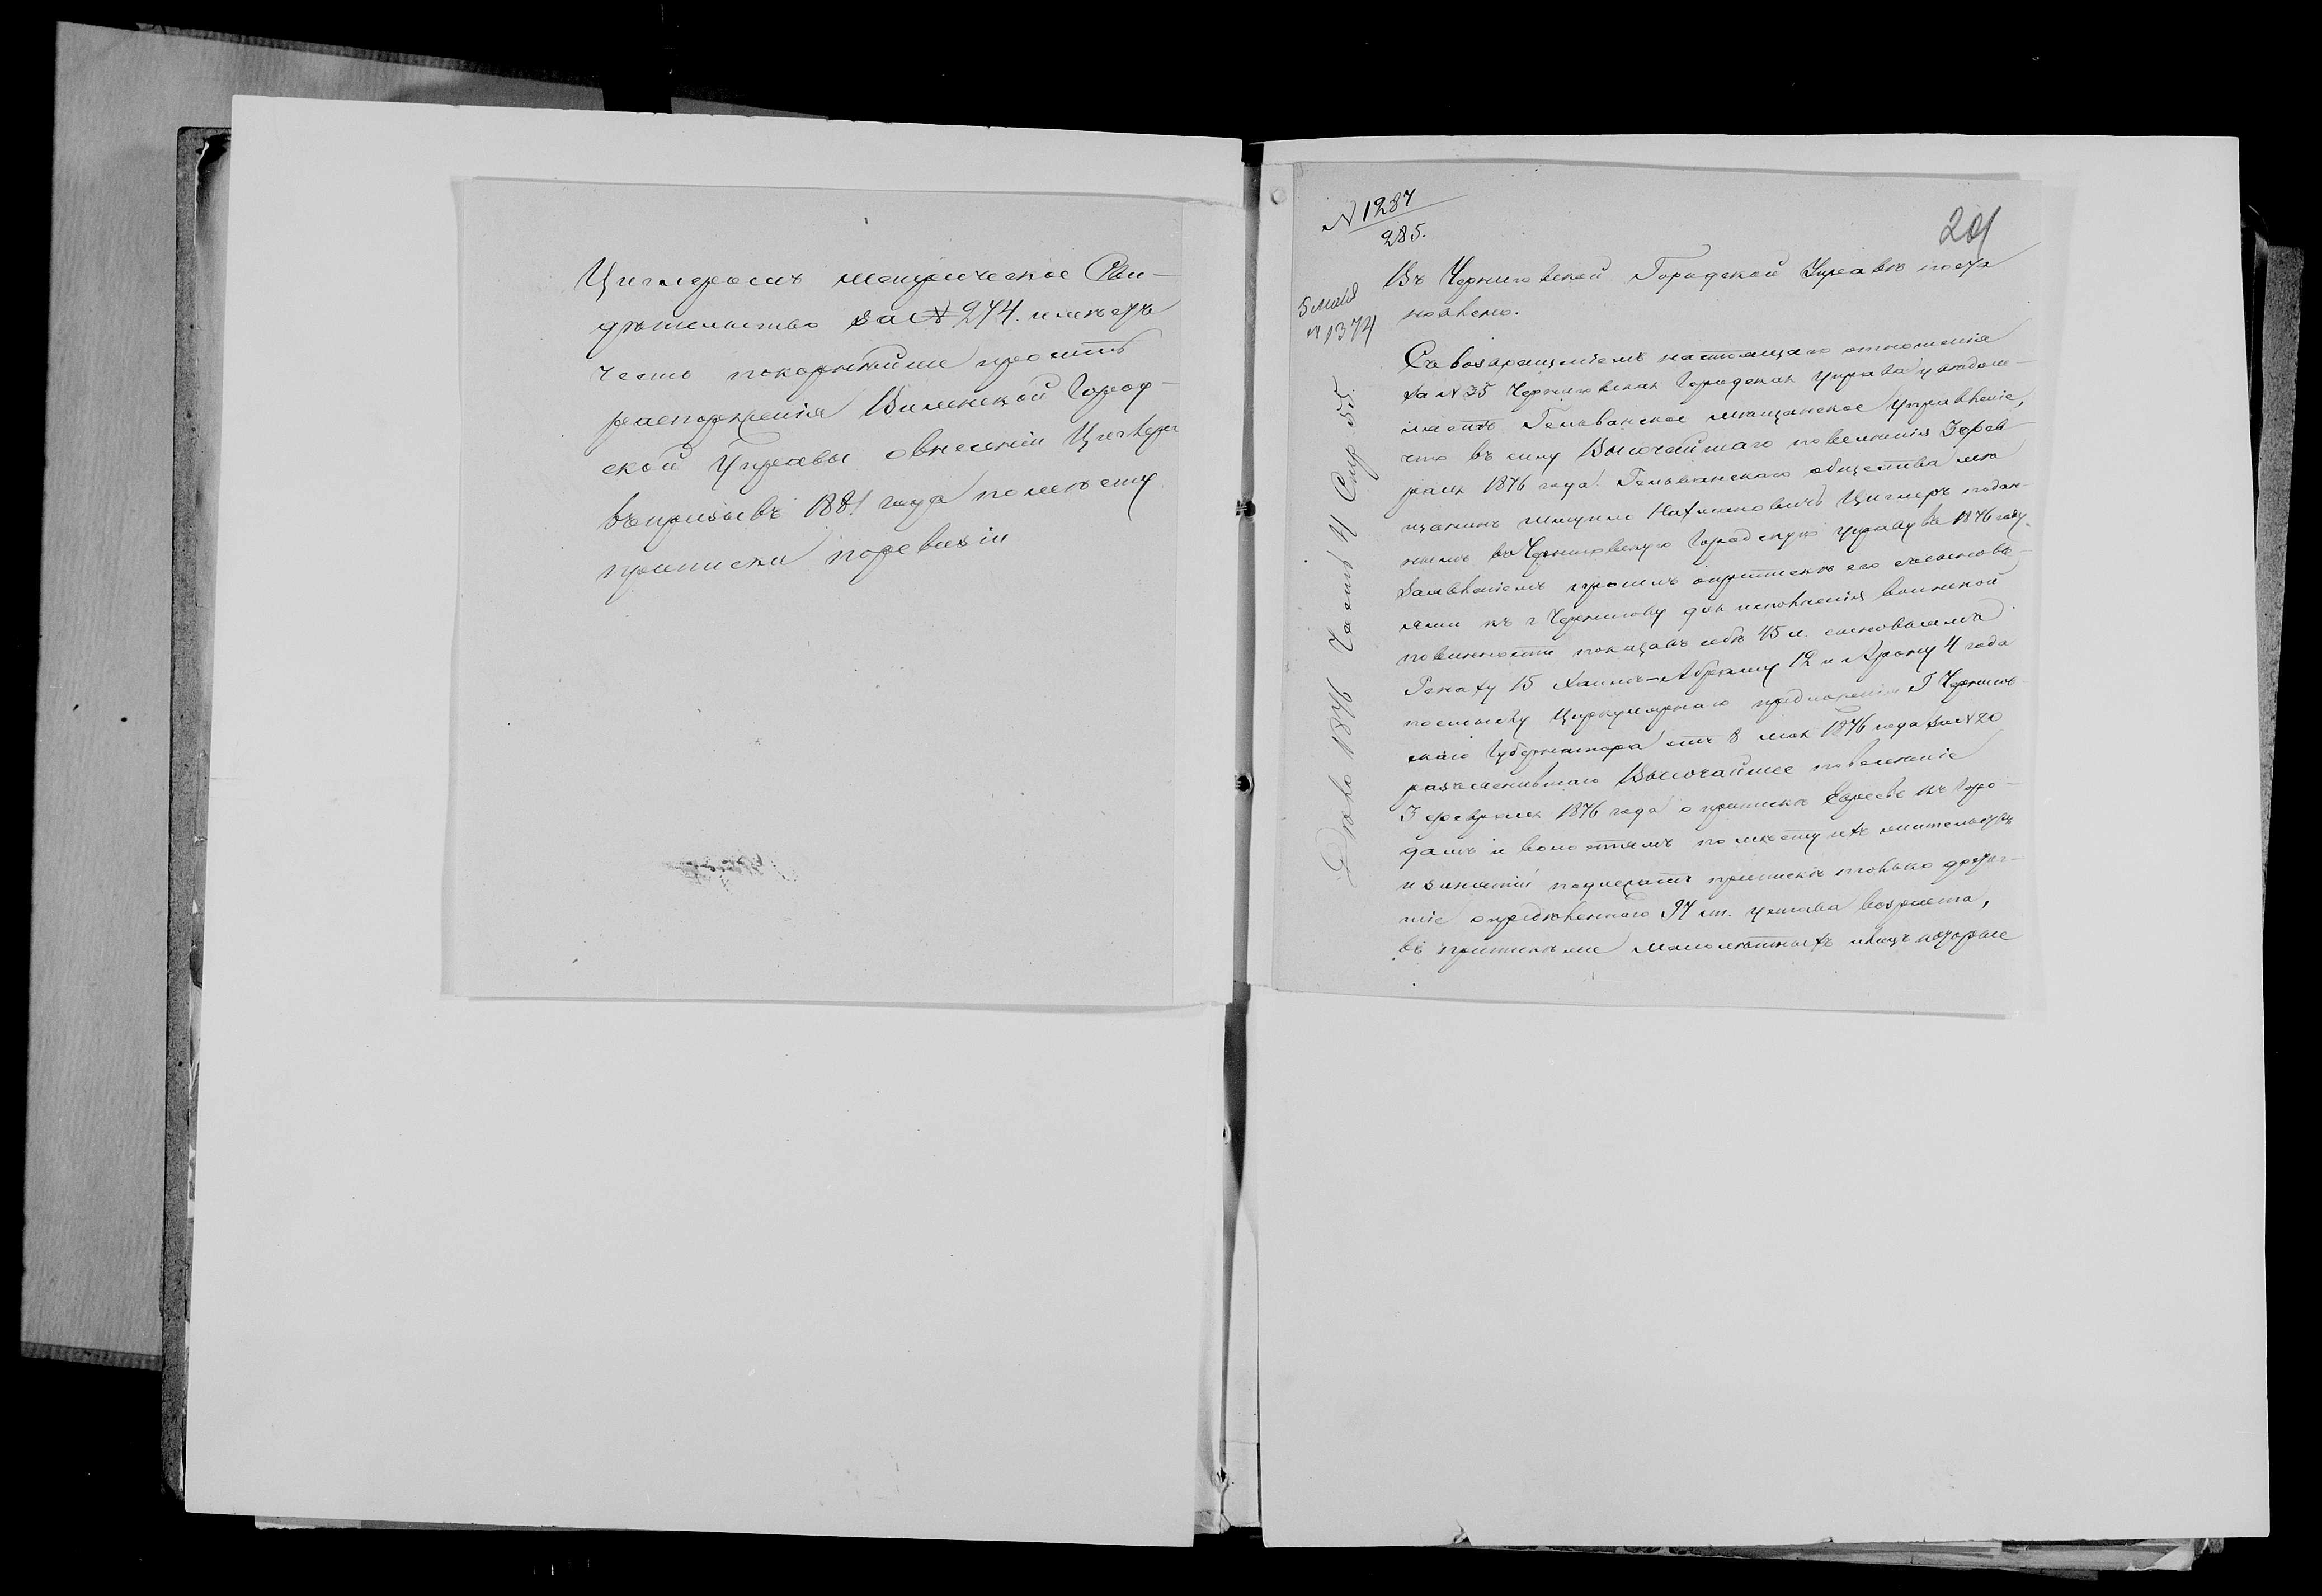 Циглеромъ метрическое Сви-
дѣтельство за № 274. имѣетъ
честь покорнѣйше просить
распоряженія Виленской Город-
ской Управы о внесеніи Циглера
въ призывъ 1881 года по мѣсту
приписки по ревизіи
№ 1287
285.
201
5 Мая
№ 1374
Въ Черниговской Городской Управѣ поста
новлено.
Съ возвращеніемъ настоящаго отношенія
за № 35 Черниговская Городская Управа увѣдом-
ляетъ Гельванское мѣщанское Управленіе,
что въ силу Высочайшаго повелѣнія 3 фев-
раля 1876 года Гельванскаго общества мѣ
щанинъ Нахмановичъ Циглеръ подан-
нымъ въ Черниговскую Городскую управу въ 1876 году
заявленіемъ просилъ о припискѣ его съ сыновь-
ями къ г Чернигову для исполненія воинской
повинности показавъ себѣ 45 л. сыновьямъ
Генаху 15 Хаимъ-Абраму 12 и Арону 4 года
по смыслу Циркулярнаго предложенія Г Чернигов-
скаго Губернатора отъ 8 мая 1876 года за № 20
разъяснившаго Высочайшее повелѣніе
3 февраля 1876 года о припискѣ Евреевъ къ Горо-
дамъ и волостямъ по мѣсту ихъ жительства
и занятій подлежатъ припискѣ только достиг-
шіе опредѣленнаго 97 ст. устава возраста,
въ припискѣ же малолѣтныхъ лицъ которые
Дѣло 1876 Часть 4 Стр 55.